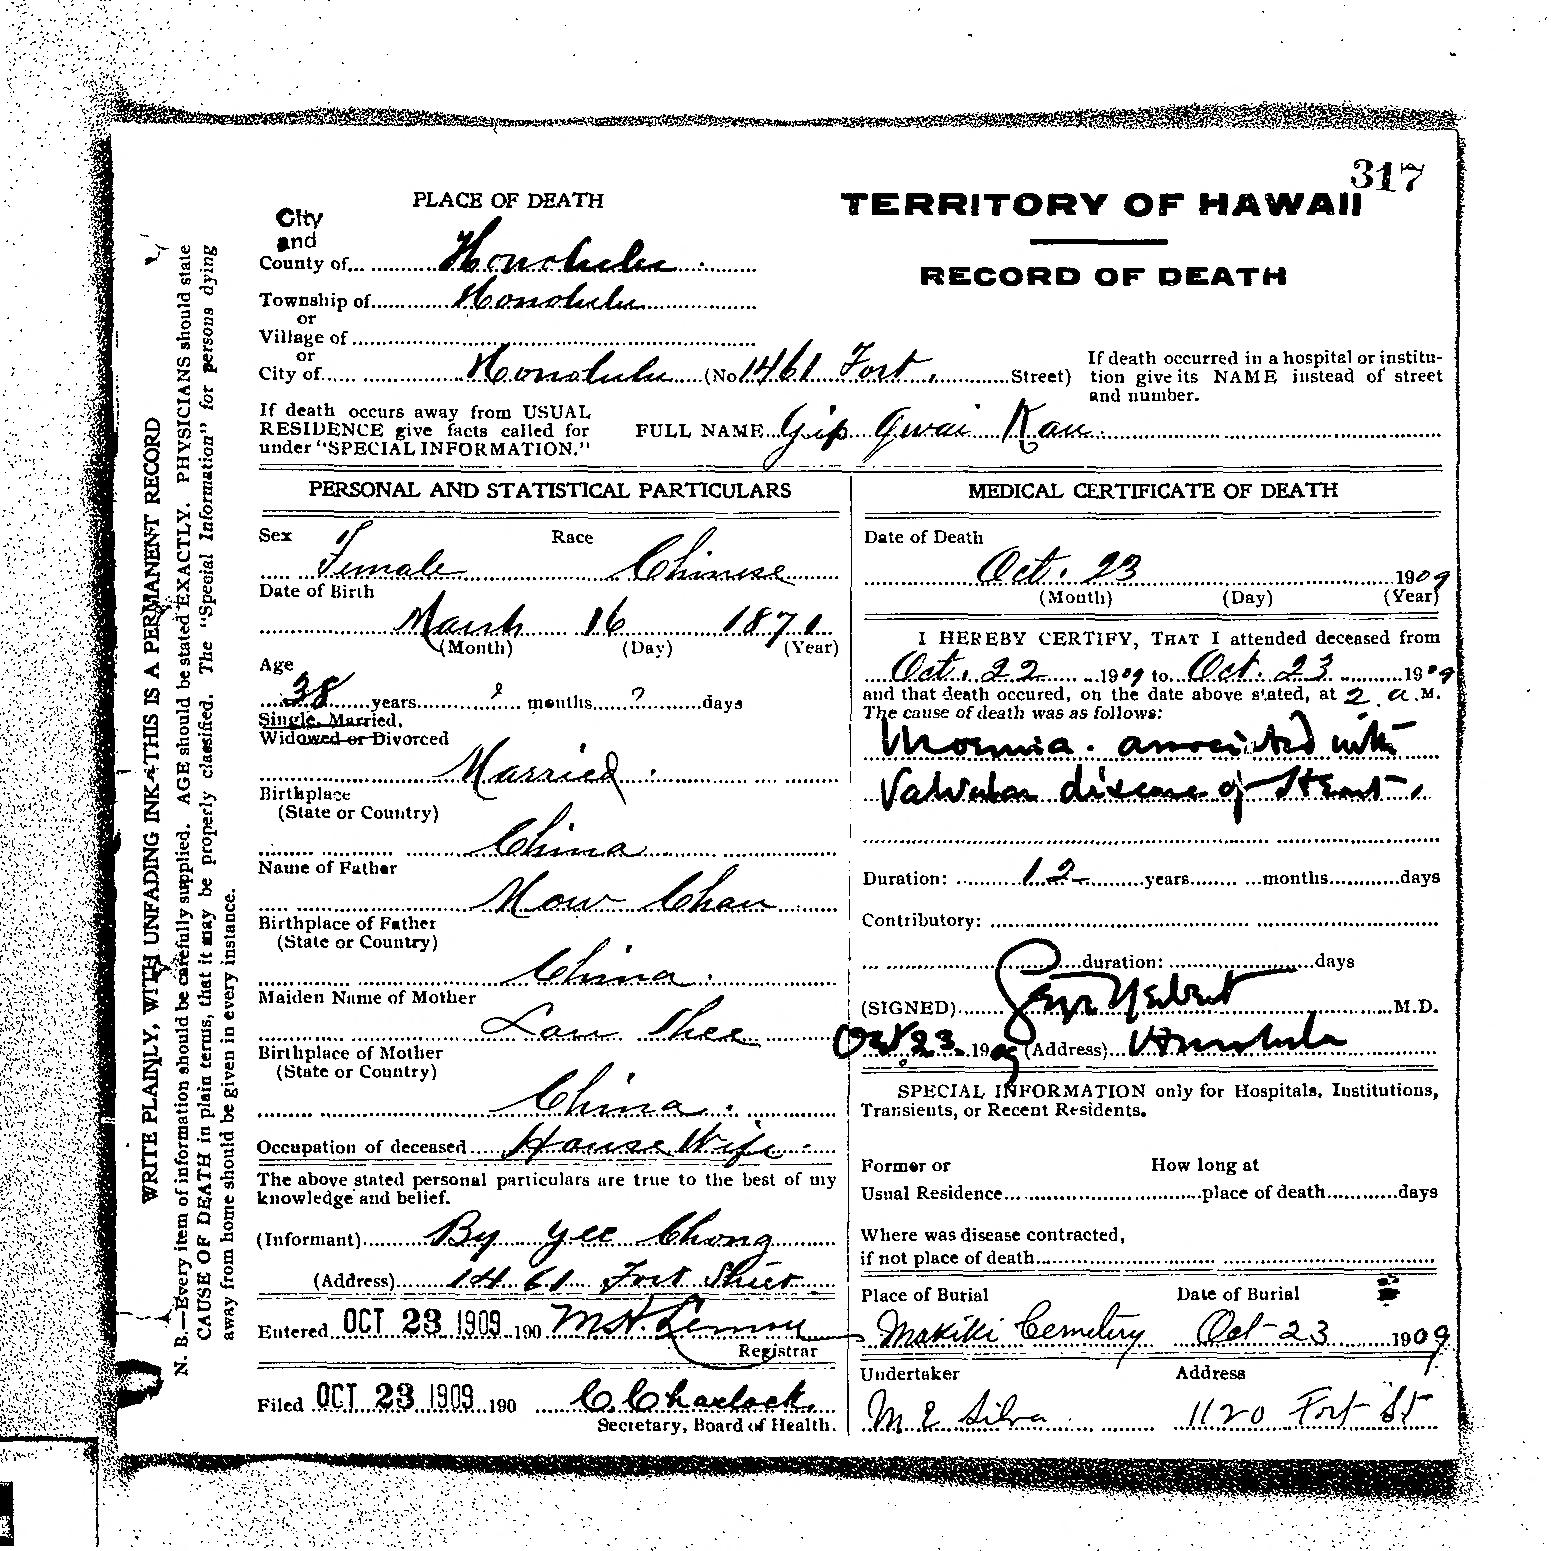 317
TERRITORY OF HAWAII
RECORD OF DEATH
PLACE OF DEATH
City
and
County of Honolulu
Township of Honolulu
or
Village of
or
City of Honolulu (No 1461 Fort. Street)
If death occurred in a hospital or institu-
tion give its NAME instead of street
and number.
If death occurs away from USUAL
RESIDENCE give facts called for
under "SPECIAL INFORMATION."
FULL NAME Yip Gwai Kau
WRITE PLAINLY, WITH UNFADING INK—THIS IS A PERMANENT RECORD
N. B.—Every item of information should be carefully supplied. AGE should be stated EXACTLY. PHYSICIANS should state
CAUSE OF DEATH in plain terms, that it may be properly classified. The "Special Information" for persons dying
away from home should be given in every instance.
PERSONAL AND STATISTICAL PARTICULARS
Sex Race
Female Chinese
Date of Birth
March 16 1871
(Month) (Day) (Year)
Age
38 years ? months ? days
Single, Married,
Widowed or Divorced
Married
Birthplace
(State or Country)
China
Name of Father
Mow Chan
Birthplace of Father
(State or Country)
China
Maiden Name of Mother
Lau Shee
Birthplace of Mother
(State or Country)
China
Occupation of deceased House Wife
The above stated personal particulars are true to the best of my
knowledge and belief.
(Informant) By Yee Chong
(Address) 1461 Fort Street
Entered OCT 23 1909 190 M H Lemon
Registrar
Filed OCT 23 1909 190 C Charlock
Secretary, Board of Health.
MEDICAL CERTIFICATE OF DEATH
Date of Death
Oct. 23 1909
(Month) (Day) (Year)
I HEREBY CERTIFY, THAT I attended deceased from
Oct. 22 1909 to Oct. 23 1909
and that death occured, on the date above stated, at 2 a. M.
The cause of death was as follows:
associated with
Valvular disease of Heart.
Duration: 12 years months days
Contributory:
duration: days
(SIGNED) Geo Herbert M.D.
Oct 23 1909 (Address) Honolulu
SPECIAL INFORMATION only for Hospitals, Institutions,
Transients, or Recent Residents.
Former or How long at
Usual Residence place of death days
Where was disease contracted,
if not place of death
Place of Burial Date of Burial
Makiki Cemetery Oct-23 1909
Undertaker Address
M E Silva 1120 Fort St